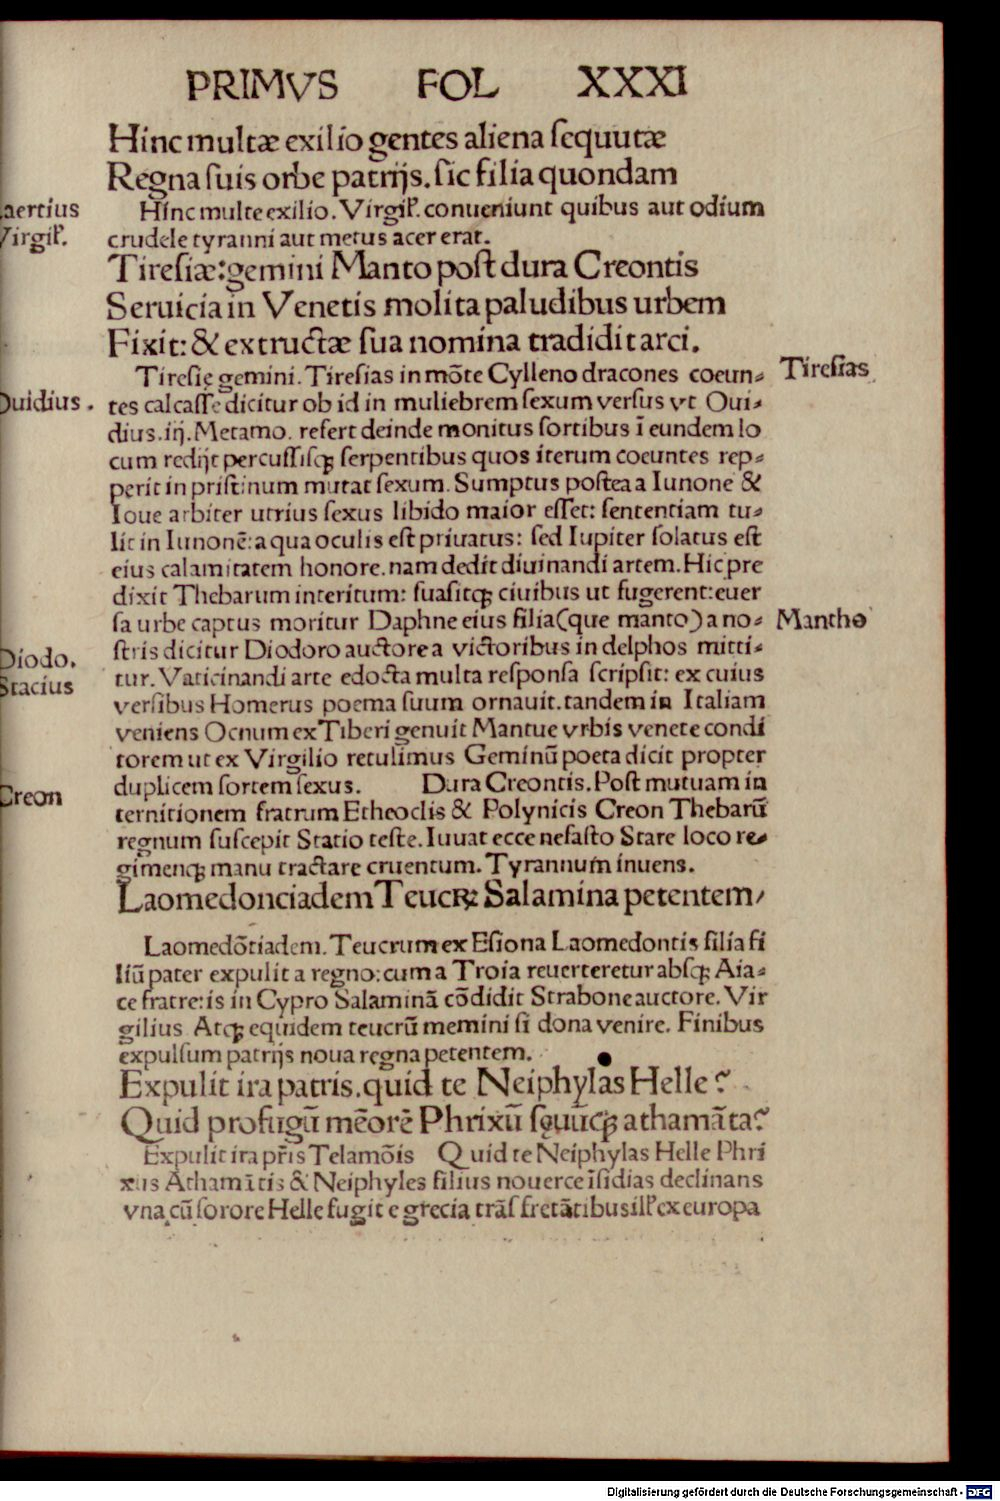 PRIMVS FOL XXXI
Hinc multæ exilio gentes aliena sequutæ
Regna suis orbe patrijs. sic filia quondam
Hinc multe exilio. Virgiľ. conueniunt quibus aut odium
aertius
Virgiľ.
crudele tyranni aut metus acer erat.
Tiresiæ: gemini Manto post dura Creontis
Seruicia in Venetis molita paludibus urbem
Fixit: & extructæ sua nomina tradidit arci.
Tiresię gemini. Tiresias in mōte Cylleno dracones coeun⸗
Tiresias
Ouidius.
tes calcasse dicitur ob id in muliebrem sexum versus vt Oui⸗
dius. iij. Metamo. refert deinde monitus sortibus ī eundem lo
cum redijt percussisqꝫ serpentibus quos iterum coeuntes rep⸗
perit in pristinum mutat sexum. Sumptus postea a Iunone &
Ioue arbiter utrius sexus libido maior esset: sententiam tu⸗
lit in Iunonē: a qua oculis est priuatus: sed Iupiter solatus est
eius calamitatem honore. nam dedit diuinandi artem. Hic pre
dixit Thebarum interitum: suasitqꝫ ciuibus ut fugerent: euer
sa urbe captus moritur Daphne eius filia (que manto) a no⸗
Mantho
stris dicitur Diodoro auctore a victoribus in delphos mitti⸗
Diodo.
Stacius
tur. Vaticinandi arte edocta multa responsa scripsit: ex cuius
versibus Homerus poema suum ornauit. tandem in Italiam
veniens Ocnum ex Tiberi genuit Mantue vrbis venete condi
torem ut ex Virgilio retulimus Geminū poeta dicit propter
duplicem sortem sexus. Dura Creontis. Post mutuam in
Creon
ternitionem fratrum Etheoclis & Polynicis Creon Thebarū
regnum suscepit Statio teste. Iuuat ecce nefasto Stare loco re⸗
gimenqꝫ manu tractare cruentum. Tyrannum inuens.
Laomedonciadem Teucꝝ: Salamina petentem/
Laomedōtiadem. Teucrum ex Esiona Laomedontis filia fi
liū pater expulit a regno: cum a Troia reuerteretur absqꝫ Aia⸗
ce fratre: is in Cypro Salaminā cōdidit Strabone auctore. Vir
gilius Atqꝫ equidem teucrū memini si dona venire. Finibus
expulsum patrijs noua regna petentem.
Expulit ira patris. quid te Neiphylas Helle?
Quid profugū mēorē Phrixū sequūcqꝫ athamāta?
Expulit ira pr̄is Telamōis Quid te Neiphylas Helle Phri
xus Athamātis & Neiphyles filius nouerce īsidias declinans
vna cū sorore Helle fugit e grecia trās fretātibus illꝰ ex europa
Digitalisierung gefördert durch die Deutsche Forschungsgemeinschaft - DFG